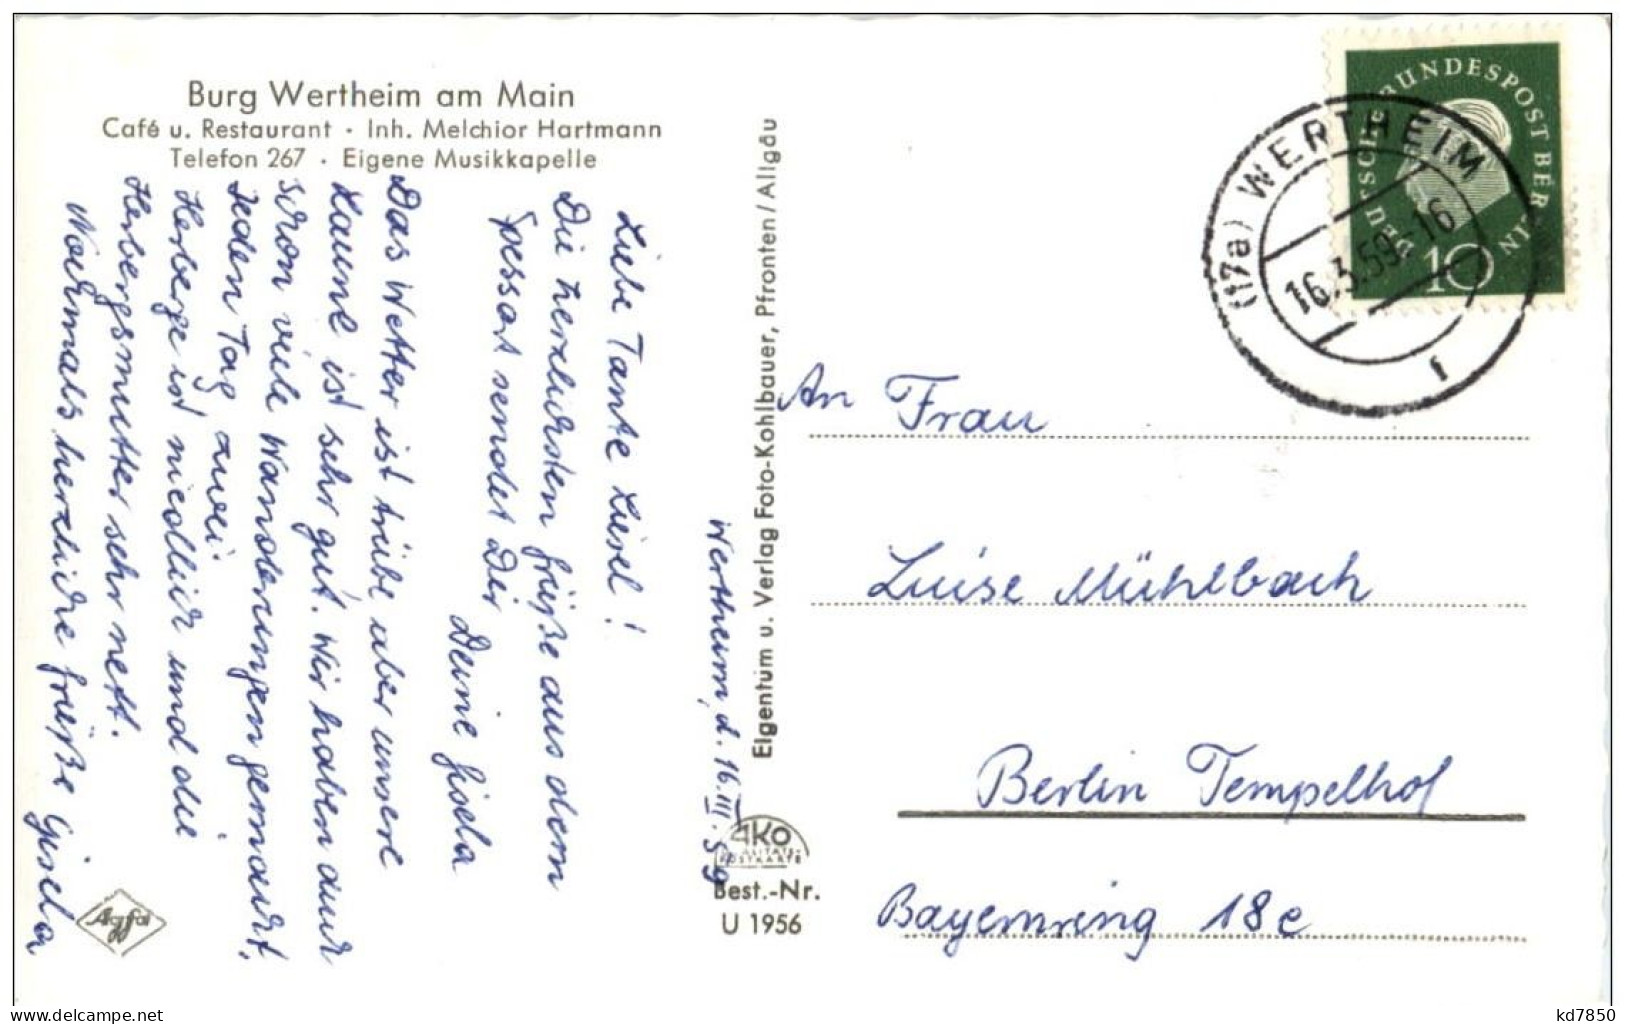 Burg Wertheim am Main
Café u. Restaurant · Inh. Melchior Hartmann
Telefon 267 · Eigene Musikkapelle
Wertheim, d. 16.III.59
Liebe Tante Liesel!
Die herzlichsten Grüße aus dem
Spessart sendet Dir
Deine Gisela
Das Wetter ist trübe aber unsere
Laune ist sehr gut. Wir haben auch
schon viele Wanderungen gemacht.
Jeden Tag zwei.
Herberge ist niedlich und die
Herbergsmutter sehr nett.
Nochmals herzliche Grüße Gisela
Agfa
Eigentum u. Verlag Foto-Kohlbauer, Pfronten/Allgäu
AKO
QUALITÄTS-
POSTKARTE
Best.-Nr.
U 1956
DEUTSCHE BUNDESPOST BERLIN
10
(17a) WERTHEIM
16.3.59-16
1
An Frau
Luise Mühlbach
Berlin Tempelhof
Bayernring 18c
www.delcampe.net
kd7850